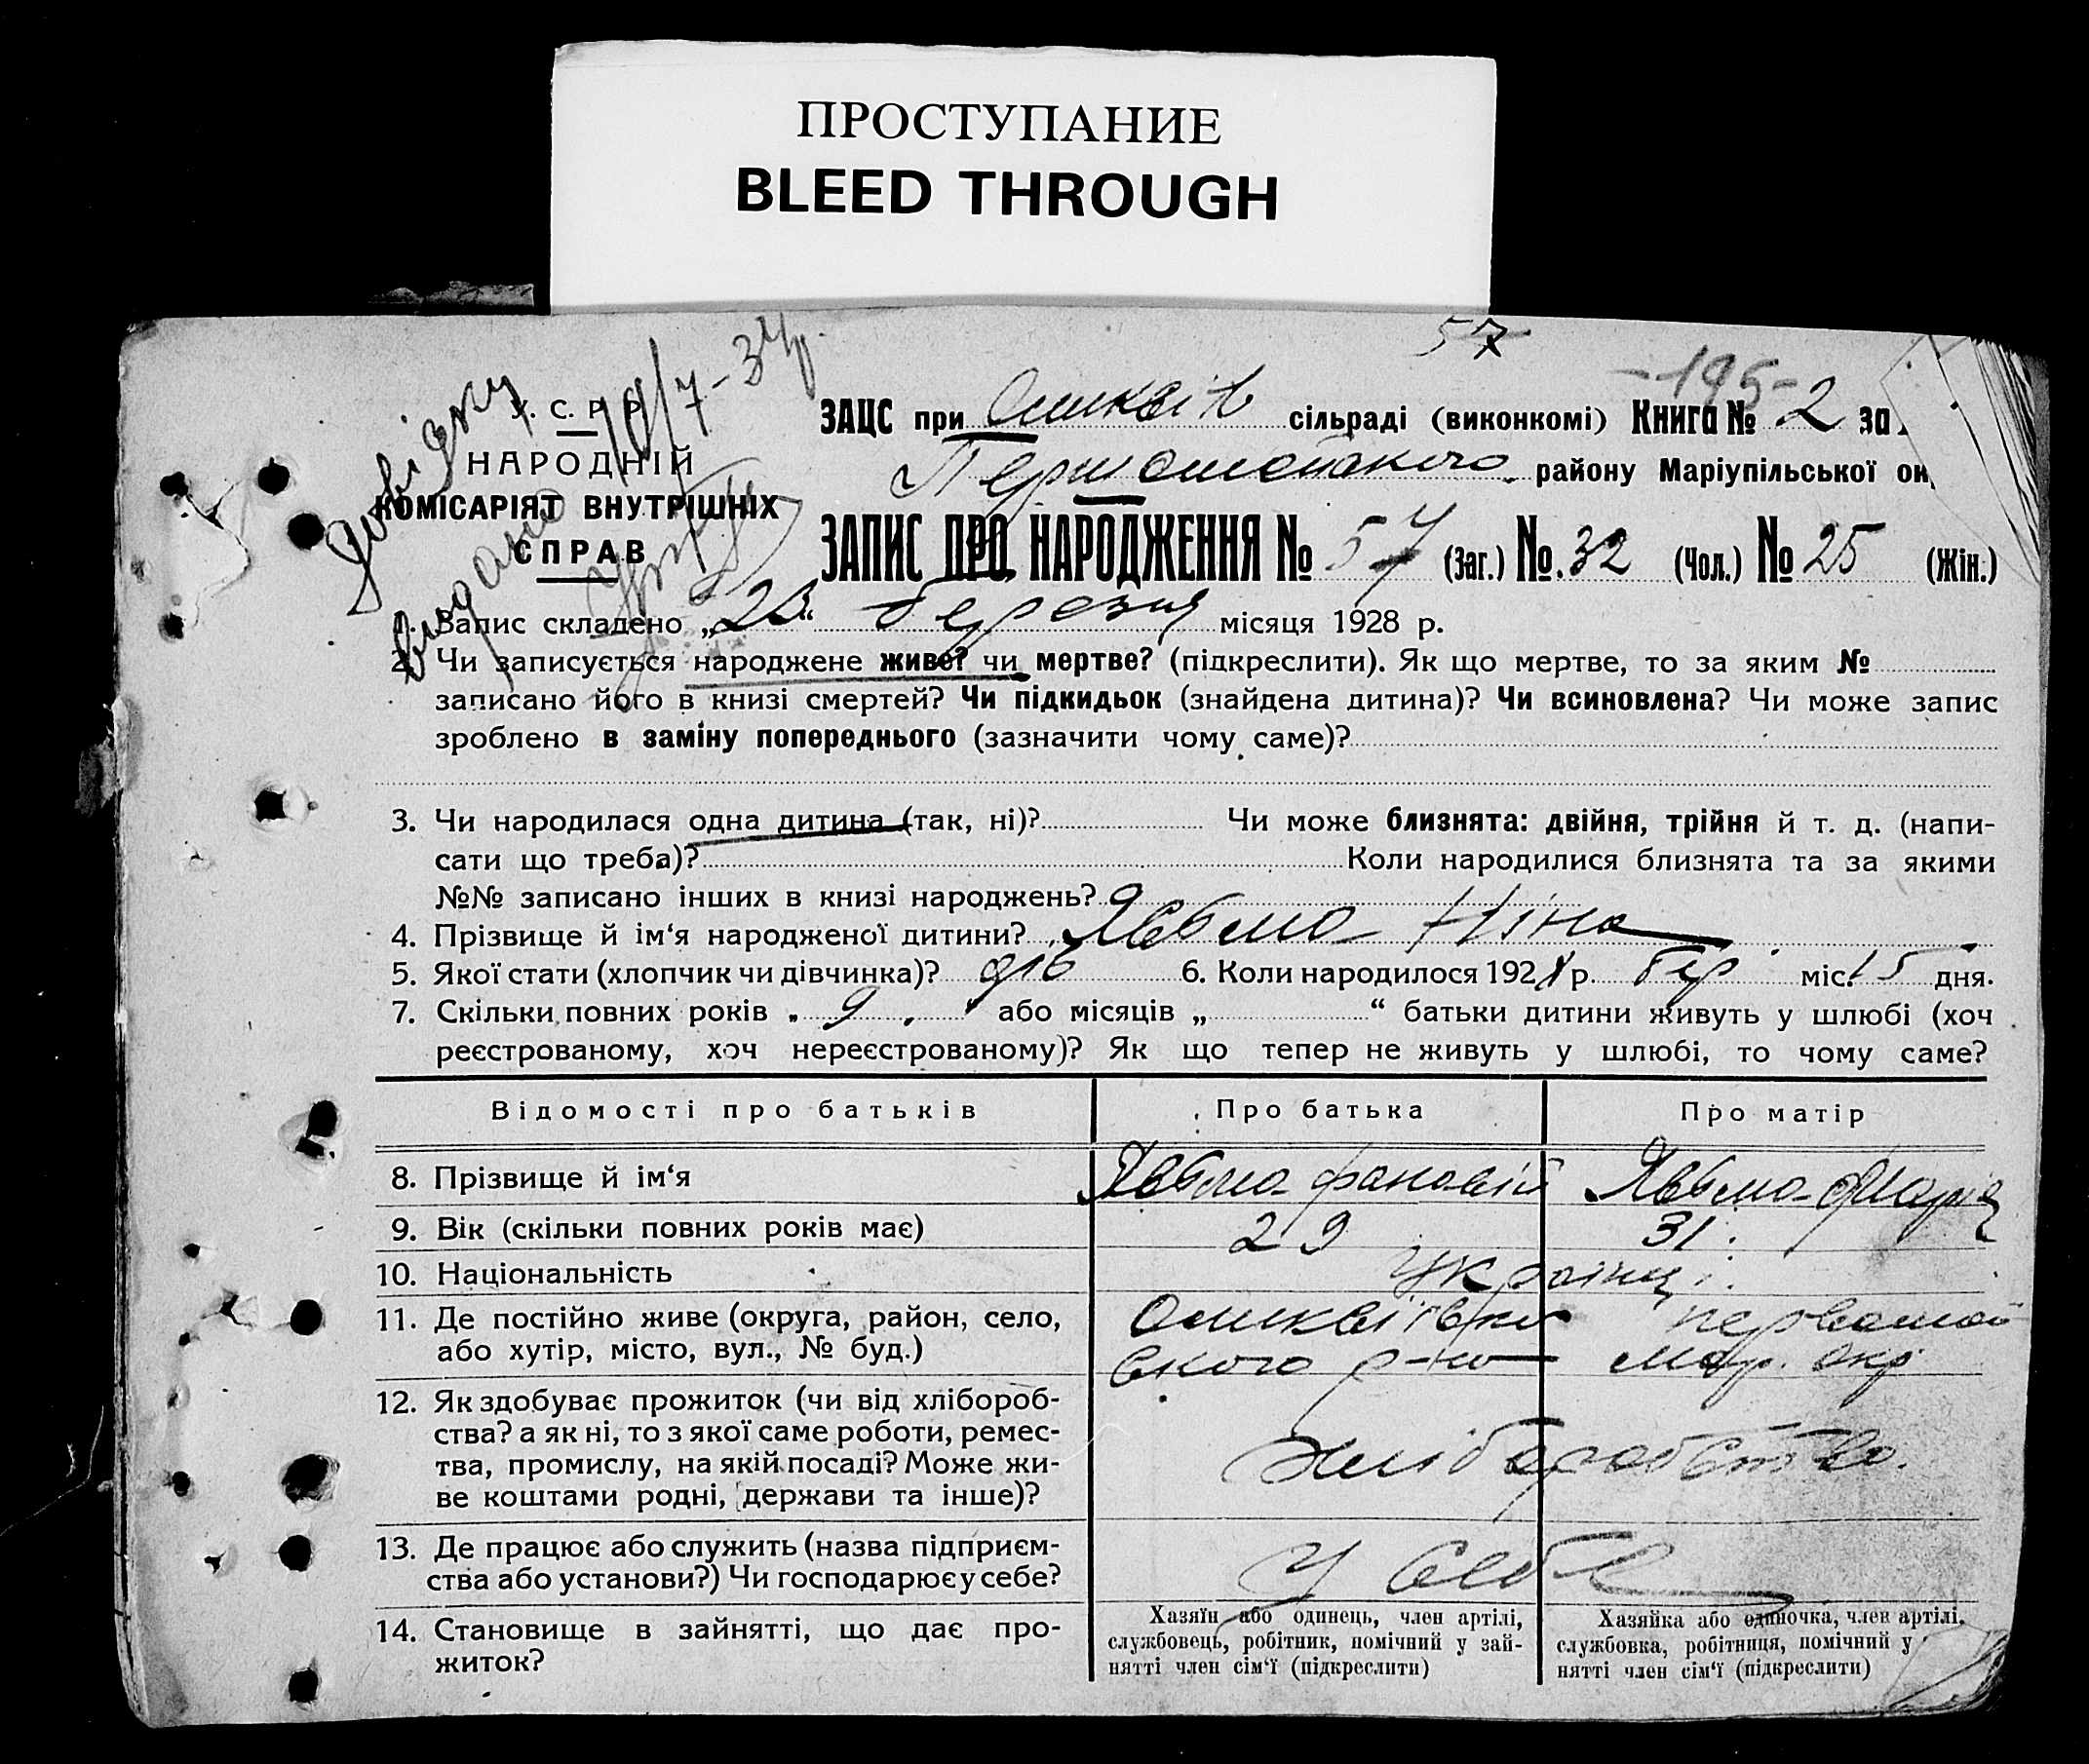 ПРОСТУПАНИЕ
BLEED THROUGH
57
-195-
Довідку видано 19/7-34р.
У. С. Р. Р.
НАРОДНІЙ
КОМІСАРІЯТ ВНУТРІШНІХ
СПРАВ
ЗАЦС при сільраді (виконкомі) Книга № 2 за
району Маріупільської ок
ЗАПИС ПРО НАРОДЖЕННЯ № 57 (Заг.) №. 32 (Чол.) № 25 (Жін.)
1. Запис складено „ “ березня місяця 1928 р.
2. Чи записується народжене живе? чи мертве? (підкреслити). Як що мертве, то за яким №
записано його в книзі смертей? Чи підкидьок (знайдена дитина)? Чи всиновлена? Чи може запис
зроблено в заміну попереднього (зазначити чому саме)?
3. Чи народилася одна дитина (так, ні)? Чи може близнята: двійня, трійня й т. д. (напи-
сати що треба)? Коли народилися близнята та за якими
№№ записано інших в книзі народжень?
4. Прізвище й ім‘я народженої дитини? Ніна
5. Якої стати (хлопчик чи дівчинка)? дів 6. Коли народилося 1928 р. бер міс. 15 дня.
7. Скільки повних років „ 9 “ або місяців „ “ батьки дитини живуть у шлюбі (хоч
реєстрованому, хоч нереєстрованому)? Як що тепер не живуть у шлюбі, то чому саме?
Відомості про батьків Про батька Про матір
8. Прізвище й ім‘я
9. Вік (скільки повних років має) 29 31
10. Національність Українці
11. Де постійно живе (округа, район, село,
або хутір, місто, вул., № буд.) Первомай
ського р-но Мар. окр
12. Як здобуває прожиток (чи від хлібороб-
ства? а як ні, то з якої саме роботи, ремес-
тва, промислу, на якій посаді? Може жи-
ве коштами родні, держави та інше)? Хліборобство.
13. Де працює або служить (назва підприєм-
ства або установи?) Чи господарює у себе? У себе
14. Становище в зайнятті, що дає про-
житок?
Хазяїн або одинець, член артілі,
службовець, робітник, помічний у зай-
нятті член сім‘ї (підкреслити)
Хазяйка або одиночка, член артілі,
службовка, робітниця, помічний у
нятті член сім‘ї (підкреслити)